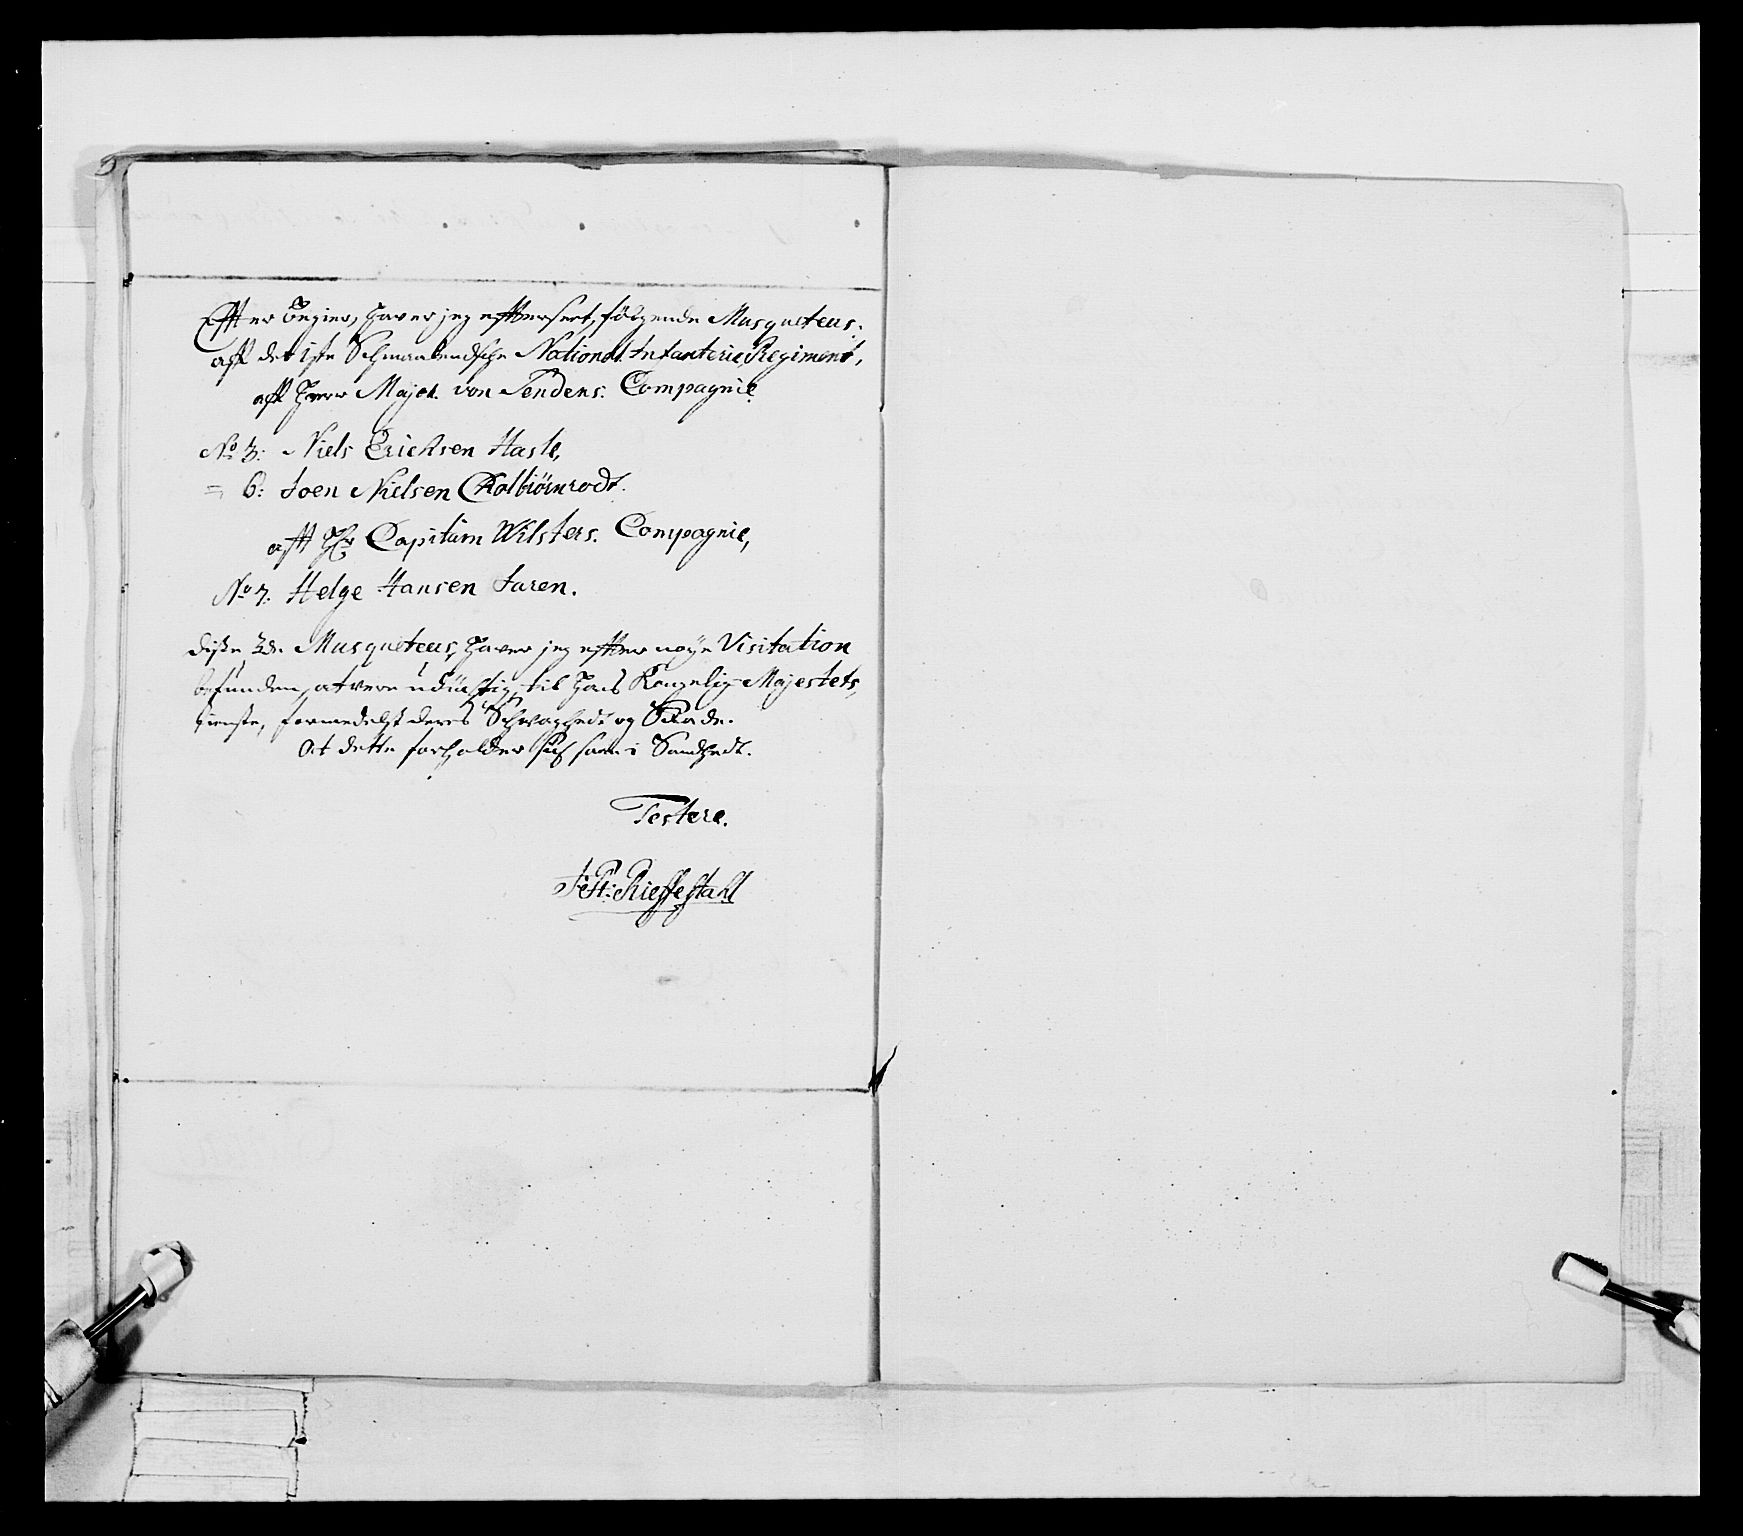 Effter Begier, haver jeg efftersert, fölgende Musqueteus:
aff det 1ste Schmaalendsche National Infanterie Regiment,
aff Herr Major von Tendens: Compagnie.
No 3: Niels Erichsen Hasle,
= 6: Joen Nielsen Kolbiörnrodt.
aff Hr Capitain Wilsters. Compagnie,
No 7. Helge Hansen Faren.
disse 3de Musqueteus, haver jeg effter nöye Visitation
befunden, at vere udüchtig, til Hans Kongelig Majestets,
tieneste, formedelst deres Schvaghedt og Skade.
At dette forholder sig saa i Sandhedt.
Testere.
Rieffestahl